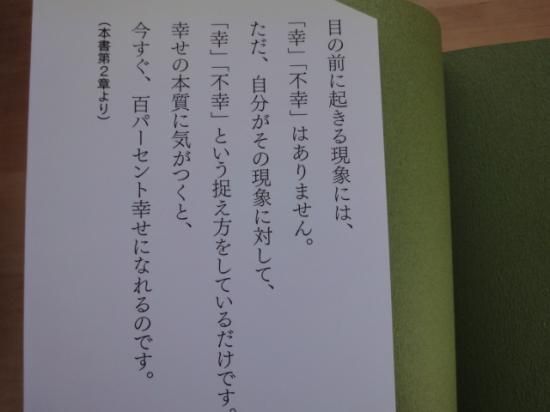 目の前に起きる現象には、
「幸」「不幸」はありません。
ただ、自分がその現象に対して、
「幸」「不幸」という捉え方をしているだけです。
幸せの本質に気がつくと、
今すぐ、百パーセント幸せになれるのです。
（本書第２章より）